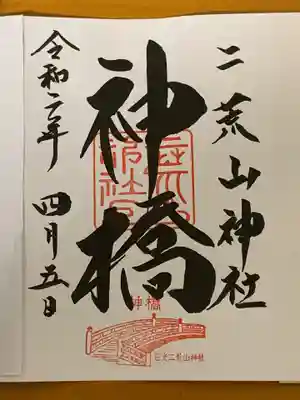 二荒山神社
神橋
令和二年 四月五日
神橋
日光二荒山神社